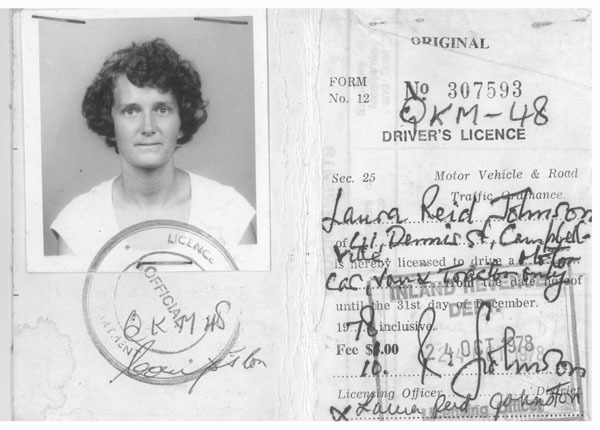 LICENCE
OFFICIAL
QKM 48
ORIGINAL
FORM
No. 12
No 307593
QKM-48
DRIVER'S LICENCE
Sec. 25 Motor Vehicle & Road
Traffic Ordinance.
Laura Reid Johnson
of 41, Dennis St, Campbell-
ville
is hereby licensed to drive a Motor
Car, Van & Tractor only
from the date hereof
until the 31st day of December.
1978 inclusive.
INLAND REVENUE
DEPT
Fee $8.00
24 OCT 1978
10.
Licensing Officer District
x Laura Reid Johnson